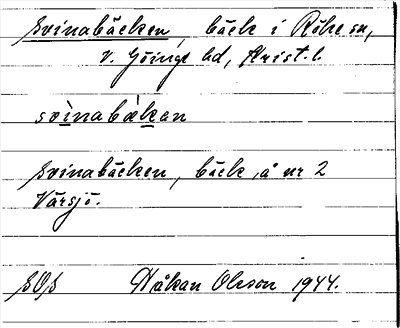 Svinabäcken, bäck i Röke sn,
V. Göinge hd, Krist. l.
svìnabækan
Svinabäcken, bäck, å nr 2
Värsjö.
SOS Håkan Olsson 1944.